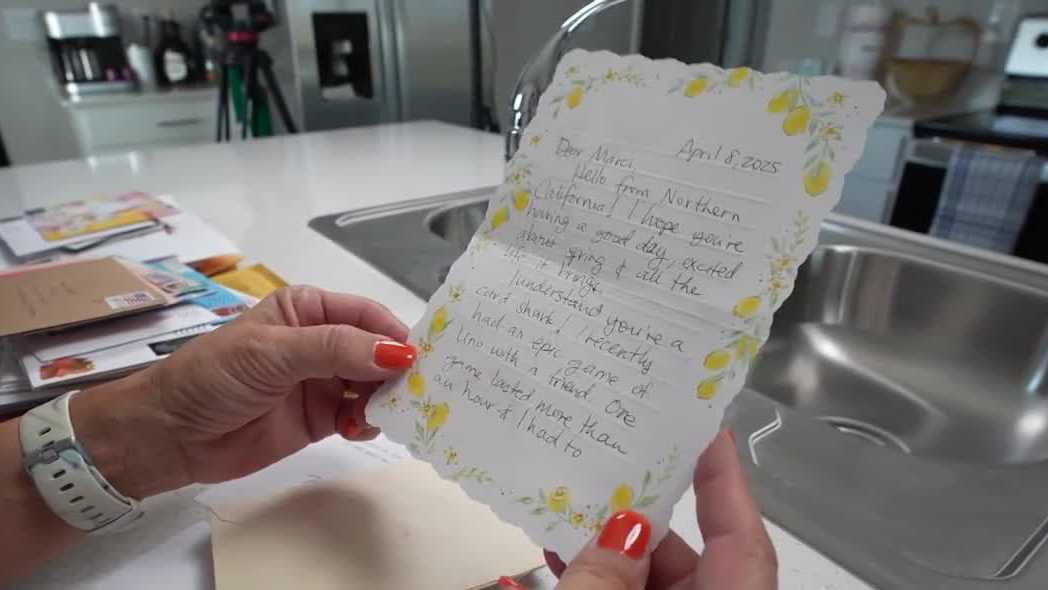 April 8, 2025
Dear Marci,
Hello from Northern
California! I hope you're
having a good day, excited
about spring & all the
life it brings.
I understand you're a
card shark! I recently
had an epic game of
Uno with a friend. One
game lasted more than
an hour & I had to